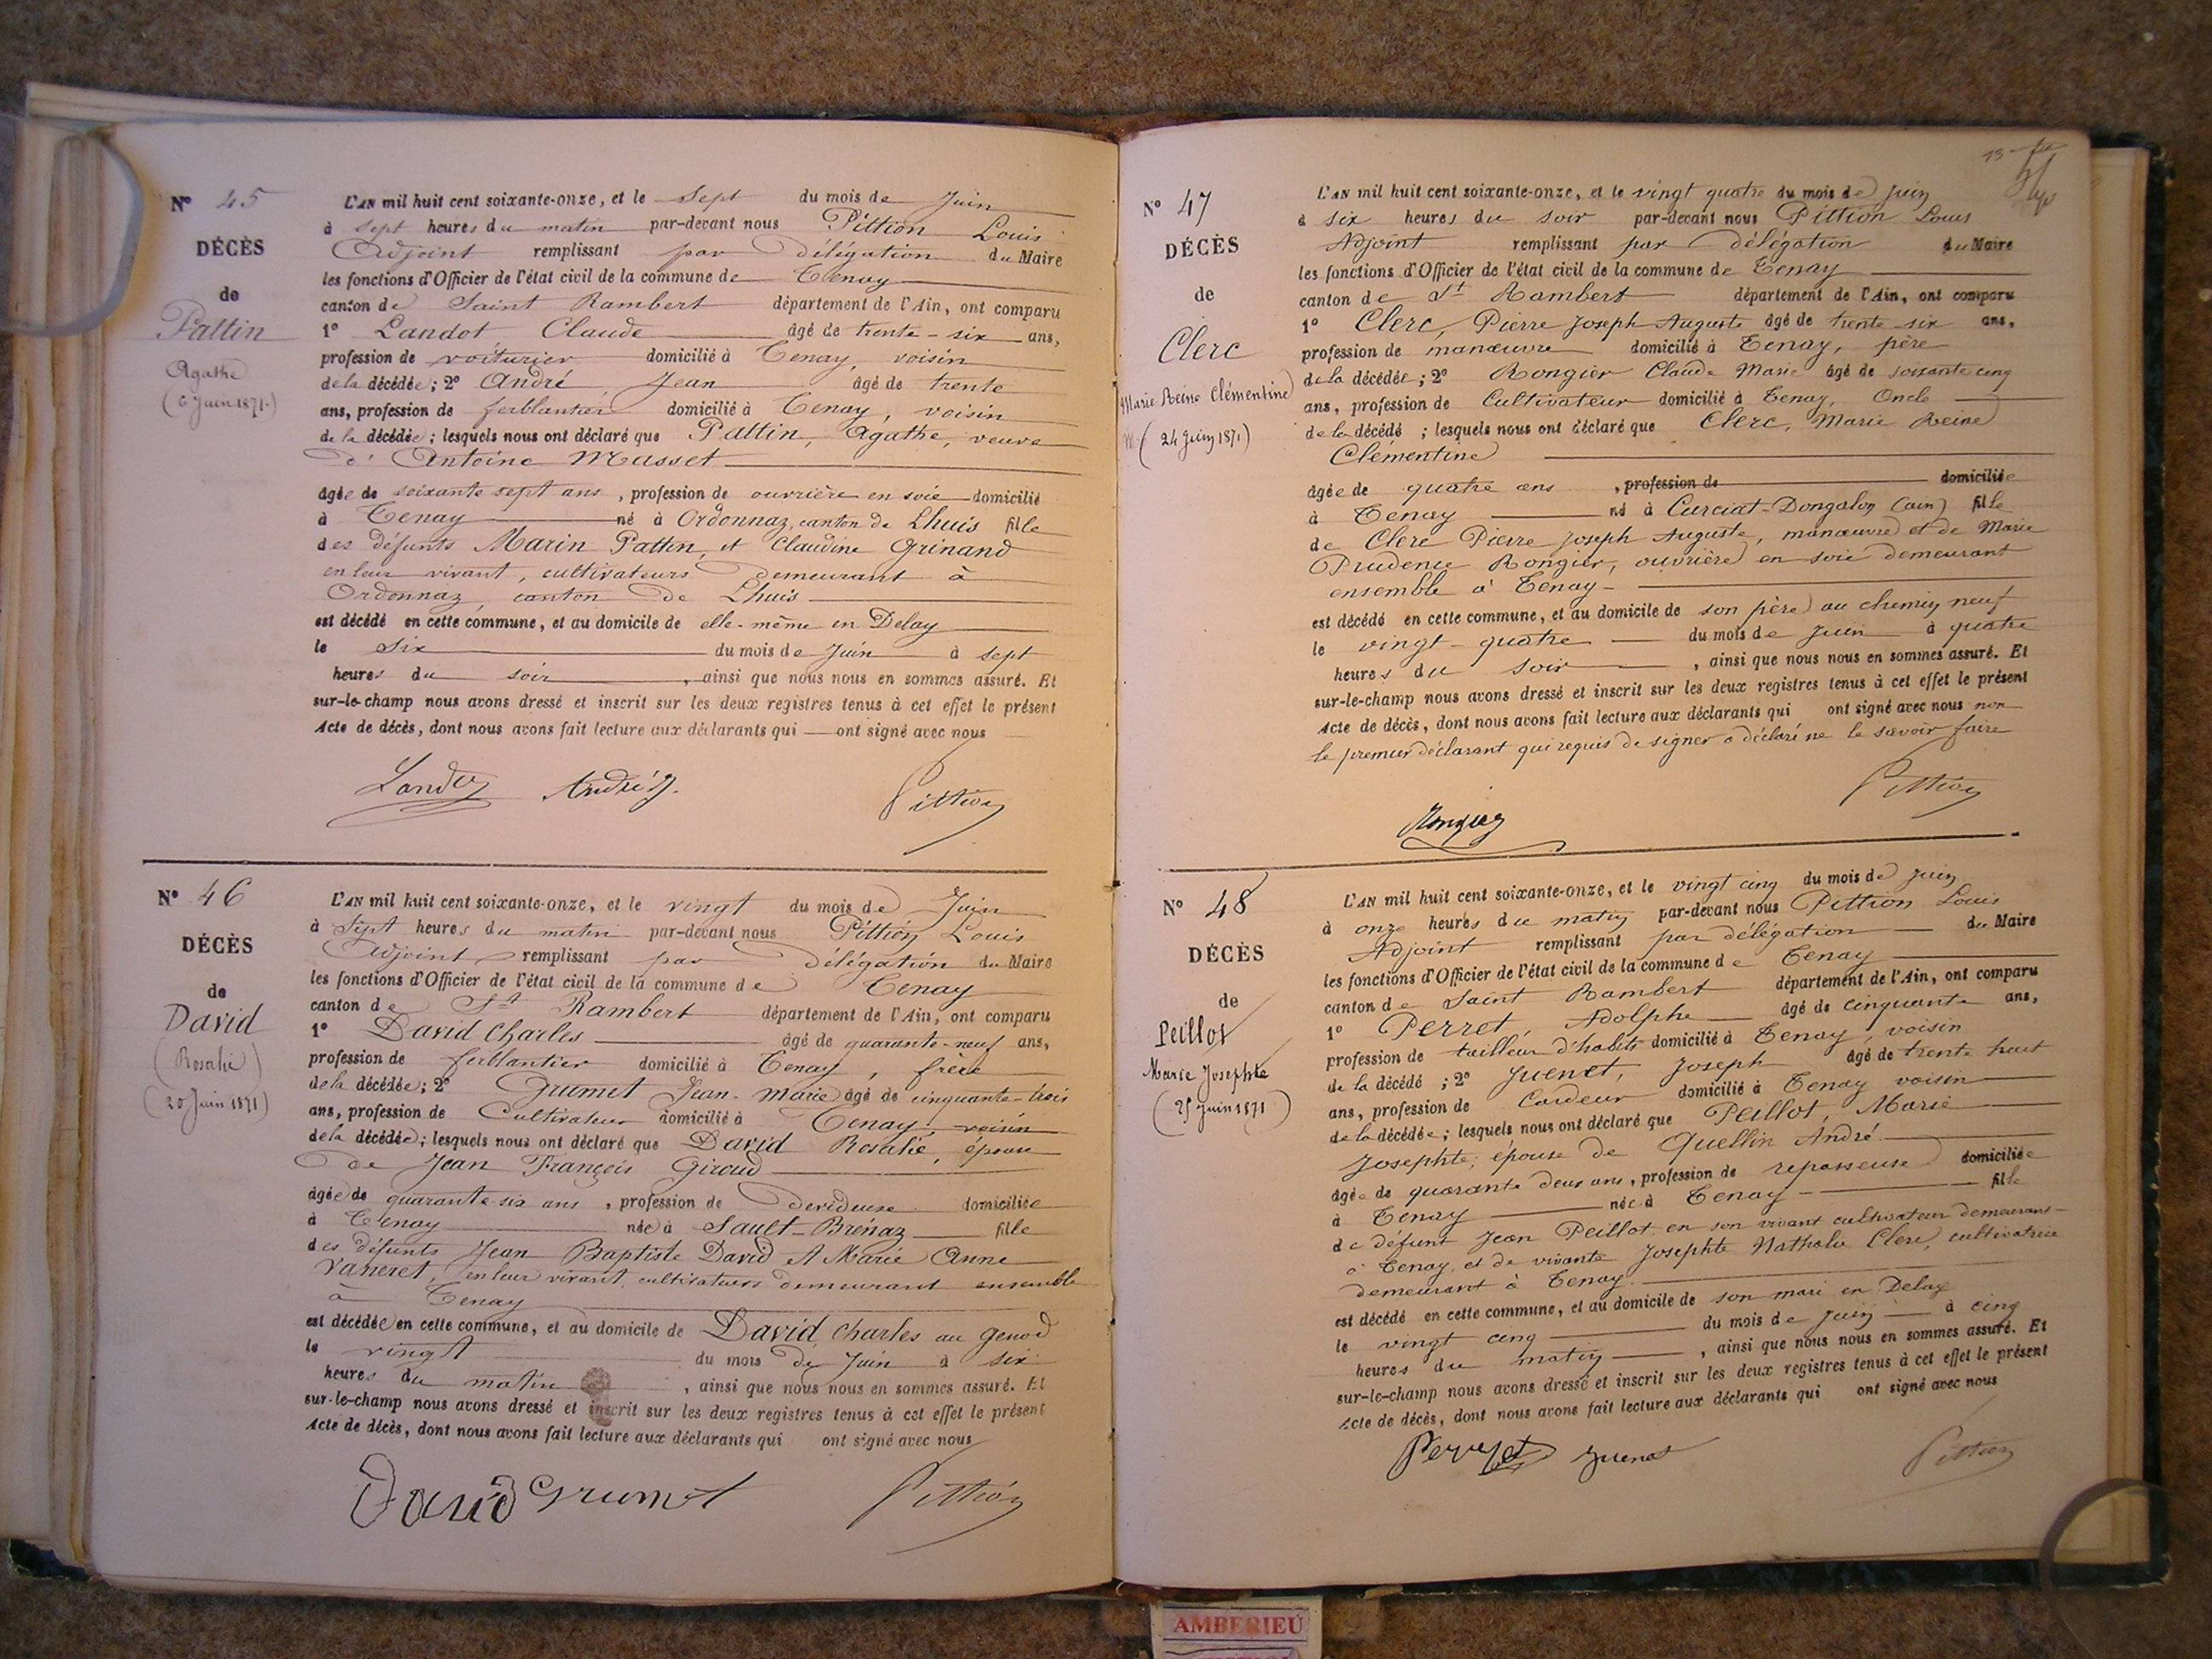 N° 45
DÉCÈS
de
Pattin
Agathe
(6 Juin 1871.)
L'AN mil huit cent soixante-onze, et le sept du mois de Juin
à sept heures du matin par-devant nous Pittion Louis
Adjoint remplissant par délégation du Maire
les fonctions d'Officier de l'état civil de la commune de Tenay
canton de Saint Rambert département de l'Ain, ont comparu
1° Landot Claude âgé de trente-six ans,
profession de voiturier domicilié à Tenay, voisin
de la décédée; 2° André Jean âgé de trente
ans, profession de ferblantier domicilié à Tenay, voisin
de la décédée; lesquels nous ont déclaré que Pattin, Agathe, veuve
d'Antoine Masset
âgée de soixante sept ans, profession de ouvrière en soie domicilié
à Tenay né à Ordonnaz, canton de Lhuis fille
des défunts Marin Pattin, et Claudine Grinand
en leur vivant, cultivateurs demeurant à
Ordonnaz, canton de Lhuis
est décédé en cette commune, et au domicile de elle-même en Delay
le six du mois de Juin à sept
heures du soir, ainsi que nous nous en sommes assuré. Et
sur-le-champ nous avons dressé et inscrit sur les deux registres tenus à cet effet le présent
Acte de décès, dont nous avons fait lecture aux déclarants qui ont signé avec nous
Landot André J. Pittion
N° 46
DÉCÈS
de
David
(Rosalie)
(20 Juin 1871)
L'AN mil huit cent soixante-onze, et le vingt du mois de Juin
à sept heures du matin par-devant nous Pittion Louis
Adjoint remplissant par délégation du Maire
les fonctions d'Officier de l'état civil de la commune de Tenay
canton de St Rambert département de l'Ain, ont comparu
1° David Charles âgé de quarante-neuf ans,
profession de ferblantier domicilié à Tenay, frère
de la décédée; 2° Grumet Jean-Marie âgé de cinquante-trois
ans, profession de Cultivateur domicilié à Tenay, voisin
de la décédée; lesquels nous ont déclaré que David Rosalie, épouse
de Jean François Giroud
âgée de quarante-six ans, profession de devideuse domiciliée
à Tenay née à Sault-Brénaz fille
des défunts Jean Baptiste David et Marie Anne
Vaneret, en leur vivant cultivateurs demeurant ensemble
à Tenay
est décédée en cette commune, et au domicile de David Charles au genod
le vingt du mois de Juin à six
heures du matin, ainsi que nous nous en sommes assuré. Et
sur-le-champ nous avons dressé et inscrit sur les deux registres tenus à cet effet le présent
Acte de décès, dont nous avons fait lecture aux déclarants qui ont signé avec nous
David Grumet Pittion
13
N° 47
DÉCÈS
de
Clerc
Marie Reine Clémentine
(24 Juin 1871)
L'AN mil huit cent soixante-onze, et le vingt quatre du mois de Juin
à six heures du soir par-devant nous Pittion Louis
Adjoint remplissant par délégation du Maire
les fonctions d'Officier de l'état civil de la commune de Tenay
canton de St Rambert département de l'Ain, ont comparu
1° Clerc, Pierre Joseph Auguste âgé de trente-six ans,
profession de manœuvre domicilié à Tenay, père
de la décédée; 2° Rongier Claude Marie âgé de soixante cinq
ans, profession de Cultivateur domicilié à Tenay, Oncle
de la décédé; lesquels nous ont déclaré que Clerc, Marie Reine
Clémentine
âgée de quatre ans, profession de domiciliée
à Tenay né à Curciat-Dongalon (ain) fille
de Clerc Pierre Joseph Auguste, manœuvre et de Marie
Prudence Rongier, ouvrière en soie demeurant
ensemble à Tenay
est décédé en cette commune, et au domicile de son père au chemin neuf
le vingt-quatre du mois de Juin à quatre
heures du soir, ainsi que nous nous en sommes assuré. Et
sur-le-champ nous avons dressé et inscrit sur les deux registres tenus à cet effet le présent
Acte de décès, dont nous avons fait lecture aux déclarants qui ont signé avec nous non
le premier déclarant qui requis de signer a déclaré ne le savoir faire
Rongier Pittion
N° 48
DÉCÈS
de
Peillot
Marie Josephte
(25 Juin 1871)
L'AN mil huit cent soixante-onze, et le vingt cinq du mois de Juin
à onze heures du matin par-devant nous Pittion Louis
Adjoint remplissant par délégation du Maire
les fonctions d'Officier de l'état civil de la commune de Tenay
canton de Saint Rambert département de l'Ain, ont comparu
1° Perret, Adolphe âgé de cinquante ans,
profession de tailleur d'habits domicilié à Tenay, voisin
de la décédé; 2° Juenet, Joseph âgé de trente huit
ans, profession de Cardeur domicilié à Tenay voisin
de la décédée; lesquels nous ont déclaré que Peillot, Marie
Josephte, épouse de Quellin André
âgée de quarante deux ans, profession de repasseuse domiciliée
à Tenay née à Tenay fille
de défunt Jean Peillot en son vivant cultivateur demeurant
à Tenay, et de vivante Josephte Nathalie Clerc, cultivatrice
demeurant à Tenay.
est décédé en cette commune, et au domicile de son mari en Delay
le vingt cinq du mois de Juin à cinq
heures du matin, ainsi que nous nous en sommes assuré. Et
sur-le-champ nous avons dressé et inscrit sur les deux registres tenus à cet effet le présent
Acte de décès, dont nous avons fait lecture aux déclarants qui ont signé avec nous
Perret Juenet Pittion
AMBERIEU